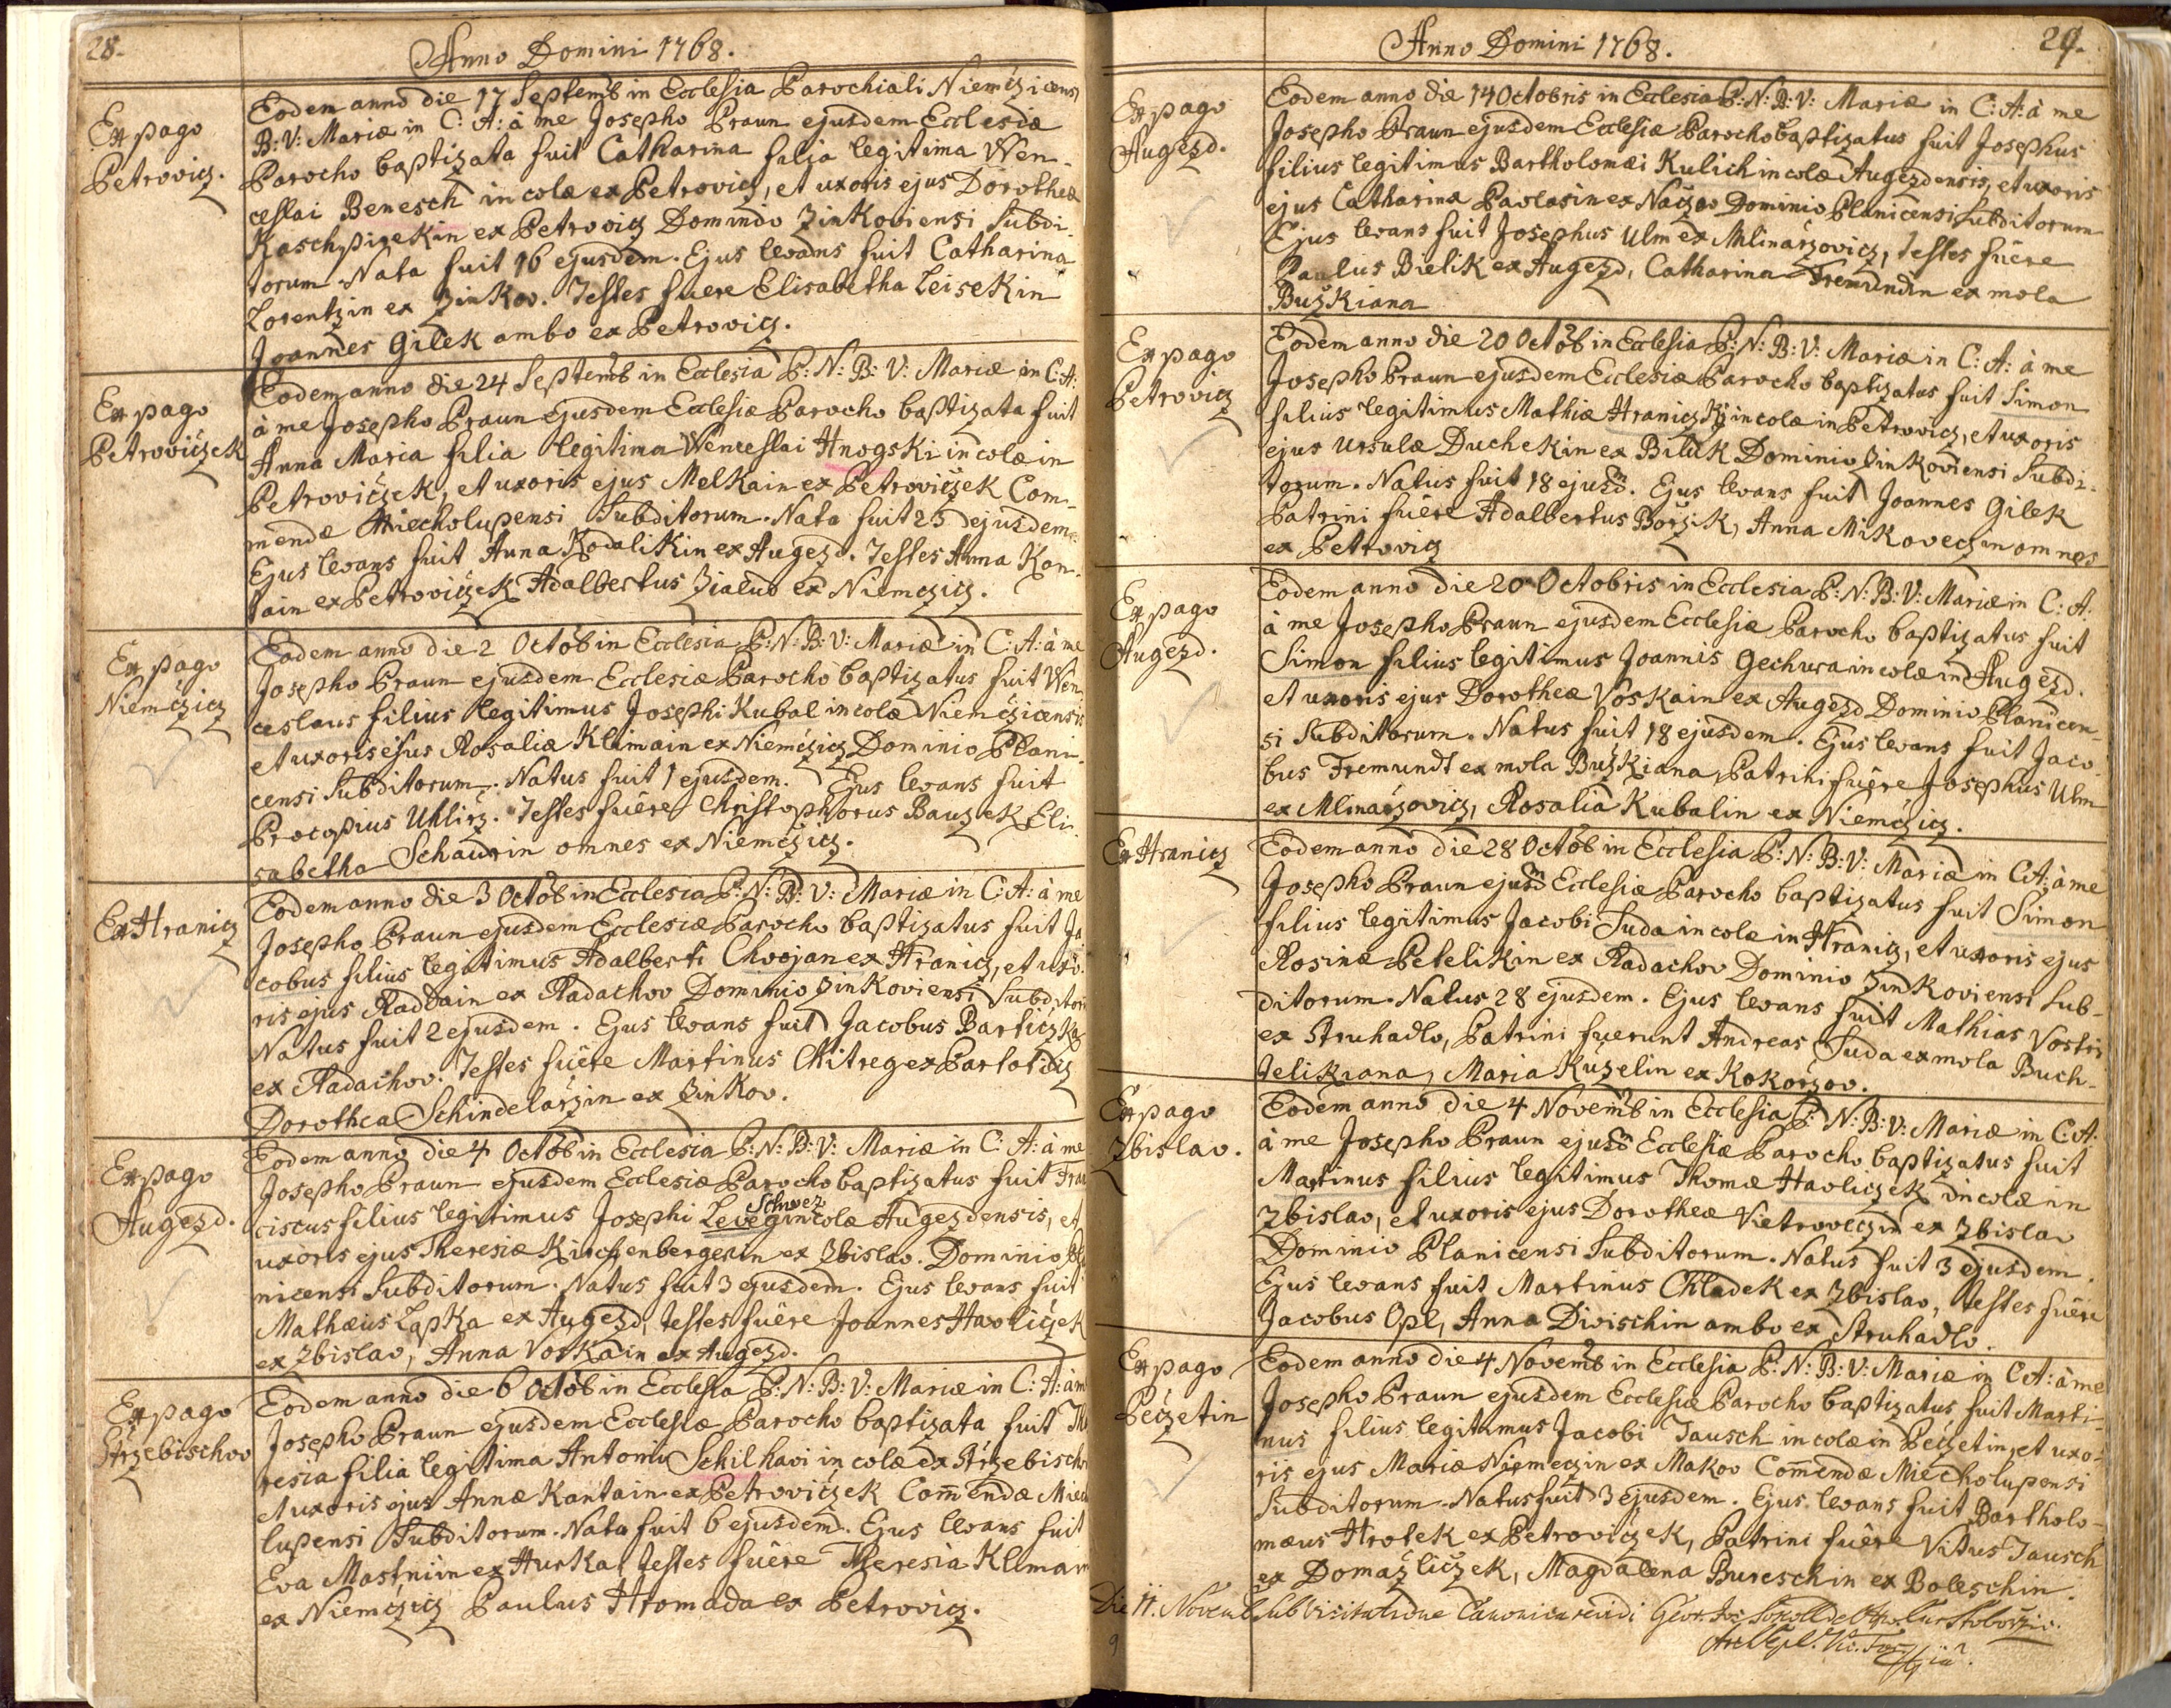 28.
Anno Domini 1768.
Ex pago
Petrovicz.
Eodem anno die 17 Septemb in Ecclesia Parochiali Niemczicens
B: V: Mariæ in C: A: à me Josepho Praun ejusdem Ecclesiæ
Parocho baptizata fuit Catharina filia legitima Wen-
ceslai Benesch incolæ ex Petrovicz, et uxoris ejus Dorotheæ
Kaschpirekin ex Petrovicz Dominio Zinkoviensi Subdi-
torum. Nata fuit 16 ejusdem. Ejus levans fuit Catharina
Lorentzin ex Zinkov. Testes fuere Elisabetha Leisekin
Joannes Gilek ambo ex Petrovicz.
Ex pago
Petroviczek
Eodem anno die 24 Septemb in Ecclesia P: N: B: V: Mariæ in C: A:
à me Josepho Praun ejusdem Ecclesiæ Parocho baptizata fuit
Anna Maria filia legitima Wenceslai Hnogski incolæ in
Petroviczek, et uxoris ejus Melkain ex Petroviczek Com-
mendæ Miecholupensi Subditorum. Nata fuit 23 ejusdem.
Ejus levans fuit Anna Kovalikin ex Augezd. Testes Anna Kan-
tain ex Petroviczek Adalbertus Zialud ex Niemczicz.
Ex pago
Niemczicz
Eodem anno die 2 Octob in Ecclesia P: N: B: V: Mariæ in C: A: à me
Josepho Praun ejusdem Ecclesiæ Parocho baptizatus fuit Wen
ceslaus filius legitimus Josephi Kubal incolæ Niemczicensis
et uxoris ejus Rosaliæ Klimain ex Niemczicz Dominio Plani-
censi Subditorum. Natus fuit 1 ejusdem. Ejus levans fuit
Procopius Uhlirz. Testes fuêre Christophorus Bauzek, Eli-
sabetha Schaurin omnes ex Niemczicz.
Ex Hranicz
Eodem anno die 3 Octob in Ecclesia P: N: B: V: Mariæ in C: A: à me
Josepho Praun ejusdem Ecclesiæ Parocho baptizatus fuit Ja
cobus filius legitimus Adalberti Chvojan ex Hranicz, et uxo-
ris ejus Raddain ex Radachov Dominio Zinkoviensi Subditor
Natus fuit 2 ejusdem. Ejus levans fuit Jacobus Barticzka
ex Radachov. Testes fuêre Martinus Chitreg ex Partoticz
Dorothea Schindelarzin ex Zinkov.
Ex pago
Augezd.
Eodem anno die 4 Octob in Ecclesia P: N: B: V: Mariæ in C: A: à me
Josepho Praun ejusdem Ecclesiæ Parocho baptizatus fuit Fran
Schwez
ciscus filius legitimus Josephi Leveg incolæ Augezdensis, et
uxoris ejus Theresiæ Kirchenbergerin ex Zbislav. Dominio Pla
nicensi Subditorum. Natus fuit 3 ejusdem. Ejus levans fuit
Mathæus Lapka ex Augezd, testes fuêre Joannes Havliczek
ex Zbislav, Anna Voskain ex Augezd.
Ex pago
Strzebischov
Eodem anno die 6 Octob in Ecclesia P: N: B: V: Mariæ in C: A: à m
Josepho Praun ejusdem Ecclesiæ Parocho baptizata fuit The
resia filia legitima Antonii Schilhavi incolæ ex Strzebischo
et uxoris ejus Annæ Kantain ex Petroviczek Com̄endæ Miech
lupensi Subditorum. Nata fuit 6 ejusdem. Ejus levans fuit
Eva Mastniin ex Hurka, testes fuêre Theresia Klimain
ex Niemczicz Paulus Hromada ex Petrovicz.
29.
Anno Domini 1768.
Ex pago
Augezd.
Eodem anno die 14 Octobris in Ecclesia P: N: B: V: Mariæ in C: A: à me
Josepho Praun ejusdem Ecclesiæ Parocho baptizatus fuit Josephus
filius legitimus Bartholomæi Kulich incolæ Augezdensis, et uxoris
ejus Catharinæ Pavlasin ex Naczav Dominio Planicensi Subditorum
Ejus levans fuit Josephus Ulm ex Mlinarzovicz, Testes fuêre
Paulus Bielik ex Augezd, Catharina Fremundin ex mola
Buzkiana
Ex pago
Petrovicz
Eodem anno die 20 Octob in Ecclesia P: N: B: V: Mariæ in C: A: à me
Josepho Praun ejusdem Ecclesiæ Parocho baptizatus fuit Simon
filius legitimus Mathiæ Hraniczki incolæ in Petrovicz, et uxoris
ejus Ursulæ Duchekin ex Biluk Dominio Zinkoviensi Subdi-
torum. Natus fuit 18 ejusd. Ejus levans fuit Joannes Gilek
Patrini fuêre Adalbertus Borzik, Anna Mikoveczin omnes
ex Petrovicz
Ex pago
Augezd.
Eodem anno die 20 Octobris in Ecclesia P: N: B: V: Mariæ in C: A:
à me Josepho Praun ejusdem Ecclesiæ Parocho baptizatus fuit
Simon filius legitimus Joannis Gechura incolæ in Augezd.
et uxoris ejus Dorotheæ Voskain ex Augezd Dominio Planicen-
si Subditorum. Natus fuit 18 ejusdem. Ejus levans fuit Jaco-
bus Fremundt ex mola Buzkiana, Patrini fuêre Josephus Ulm
ex Mlinarzovicz, Rosalia Kubalin ex Niemczicz.
Ex Hranicz
Eodem anno die 28 Octob in Ecclesia P: N: B: V: Mariæ in C: A: à me
Josepho Praun ejusd Ecclesiæ Parocho baptizatus fuit Simon
filius legitimus Jacobi Suda incolæ in Hranicz, et uxoris ejus
Rosinæ Petelikin ex Radachov Dominio Zinkoviensi Sub-
ditorum. Natus 28 ejusdem. Ejus levans fuit Mathias Vostri
ex Struhadlo, Patrini fuerunt Andreas Suda ex mola Buch-
telikiana, Maria Kuzelin ex Kokorzov.
Ex pago
Zbislav.
Eodem anno die 4 Novemb in Ecclesia P: N: B: V: Mariæ in C: A:
à me Josepho Praun ejusd Ecclesiæ Parocho baptizatus fuit
Martinus filius legitimus Thomæ Havliczek incolæ in
Zbislav, et uxoris ejus Dorotheæ Vietroveczin ex Zbislav
Dominio Planicensi Subditorum. Natus fuit 3 ejusdem.
Ejus levans fuit Martinus Chladek ex Zbislav, testes fuêre
Jacobus Opl, Anna Divischin ambo ex Struhadlo.
Ex pago
Peczetin
Eodem anno die 4 Novemb in Ecclesia P: N: B: V: Mariæ in C: A: à me
Josepho Praun ejusdem Ecclesiæ Parocho baptizatus fuit Marti-
nus filius legitimus Jacobi Tausch incolæ in Peczetin, et uxo-
ris ejus Mariæ Niemeczin ex Makov Com̄endæ Miecholupensi
Subditorum. Natus fuit 3 ejusdem. Ejus levans fuit Bartholo-
mæus Hrolek ex Petroviczek, Patrini fuêre Vitus Tausch
ex Domazliczek, Magdalena Bureschin ex Boleschin.
Die 11. Novemb sub visitatione Canonica vidi Geor. Jos.